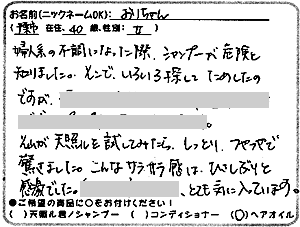 お名前(ニックネームOK): おりちゃん
( 在住、40 歳、性別: 女 )
婦人系の不調になった際、シャンプーが危険と
知りました。そこで、いろいろ探して ためしたの
ですが、
。
天然ルを試してみたら、しっとり、つやつやで
驚きました。こんなサラサラ感は、ひさしぶりと
感激でした。 、とても気に入っています。
●ご希望の商品に○をお付けください!
( )天然ル君ノシャンプー ( )コンディショナー (○)ヘアオイル